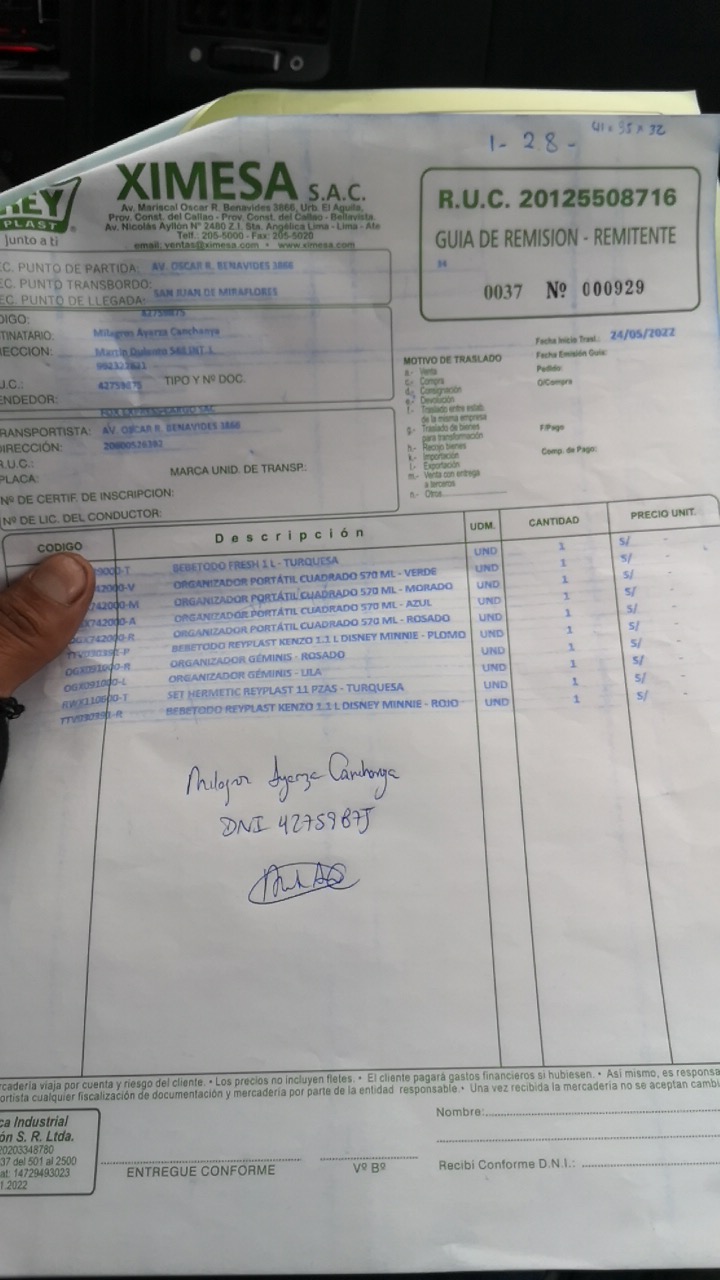 1- 28- 41 x 35 x 32
REY
PLAST
Junto a ti
XIMESA S.A.C.
Av. Mariscal Oscar R. Benavides 3866, Urb. El Aguila,
Prov. Const. del Callao - Prov. Const. del Callao - Bellavista.
Av. Nicolás Ayllon N° 2480 Z.I. Sta. Angélica Lima - Lima - Ate
Telf.: 205-5000 - Fax: 205-5020
email: ventas@ximesa.com • www.ximesa.com
R.U.C. 20125508716
GUIA DE REMISION - REMITENTE
94
0037 Nº 000929
EC. PUNTO DE PARTIDA: AV. OSCAR R. BENAVIDES 3866
EC. PUNTO TRANSBORDO:
EC. PUNTO DE LLEGADA: SAN JUAN DE MIRAFLORES
DIGO: 42759875
TINATARIO: Milagros Ayarza Canchanya
RECCION: Martin
992322821
U.C.: 42759875 TIPO Y Nº DOC.
ENDEDOR:
Fecha Inicio Trasl.: 24/05/2022
Fecha Emisión Guia:
Pedido:
O/Compra
F/Pago
Comp. de Pago:
MOTIVO DE TRASLADO
a.- Venta
c.- Compra
d.- Consignación
e.- Devolución
f.- Traslado entre estab.
de la misma empresa
g.- Traslado de bienes
para transformación
h.- Recojo bienes
k.- Importación
l.- Exportación
m.- Venta con entrega
a terceros
n.- Otros
SAC
RANSPORTISTA: AV. OSCAR R. BENAVIDES 3866
DIRECCIÓN: 20600526383
R.U.C.:
PLACA: MARCA UNID. DE TRANSP.:
Nº DE CERTIF. DE INSCRIPCION:
Nº DE LIC. DEL CONDUCTOR:
CODIGO Descripción UDM. CANTIDAD PRECIO UNIT.
9000-T BEBETODO FRESH 1 L - TURQUESA UND 1 S/ -
42000-V ORGANIZADOR PORTÁTIL CUADRADO 570 ML - VERDE UND 1 S/ -
742000-M ORGANIZADOR PORTÁTIL CUADRADO 570 ML - MORADO UND 1 S/ -
X742000-A ORGANIZADOR PORTÁTIL CUADRADO 570 ML - AZUL UND 1 S/ -
OGX742000-R ORGANIZADOR PORTÁTIL CUADRADO 570 ML - ROSADO UND 1 S/ -
TTV030391-P BEBETODO REYPLAST KENZO 1.1 L DISNEY MINNIE - PLOMO UND 1 S/ -
OGX091000-R ORGANIZADOR GÉMINIS - ROSADO UND 1 S/ -
OGX091000-L ORGANIZADOR GÉMINIS - LILA UND 1 S/ -
RWX110600-T SET HERMETIC REYPLAST 11 PZAS - TURQUESA UND 1 S/ -
TTV030391-R BEBETODO REYPLAST KENZO 1.1 L DISNEY MINNIE - ROJO UND 1 S/ -
Milagros Ayarza Canchanya
DNI 42759875
rcadería viaja por cuenta y riesgo del cliente. • Los precios no incluyen fletes. • El cliente pagará gastos financieros si hubiesen. • Así mismo, es responsa
ortista cualquier fiscalización de documentación y mercadería por parte de la entidad responsable. • Una vez recibida la mercadería no se aceptan cambi
ca Industrial
ón S. R. Ltda.
20203348780
37 del 501 al 2500
at: 14729493023
1.2022
ENTREGUE CONFORME
Vº Bº
Nombre:
Recibí Conforme D.N.I.: